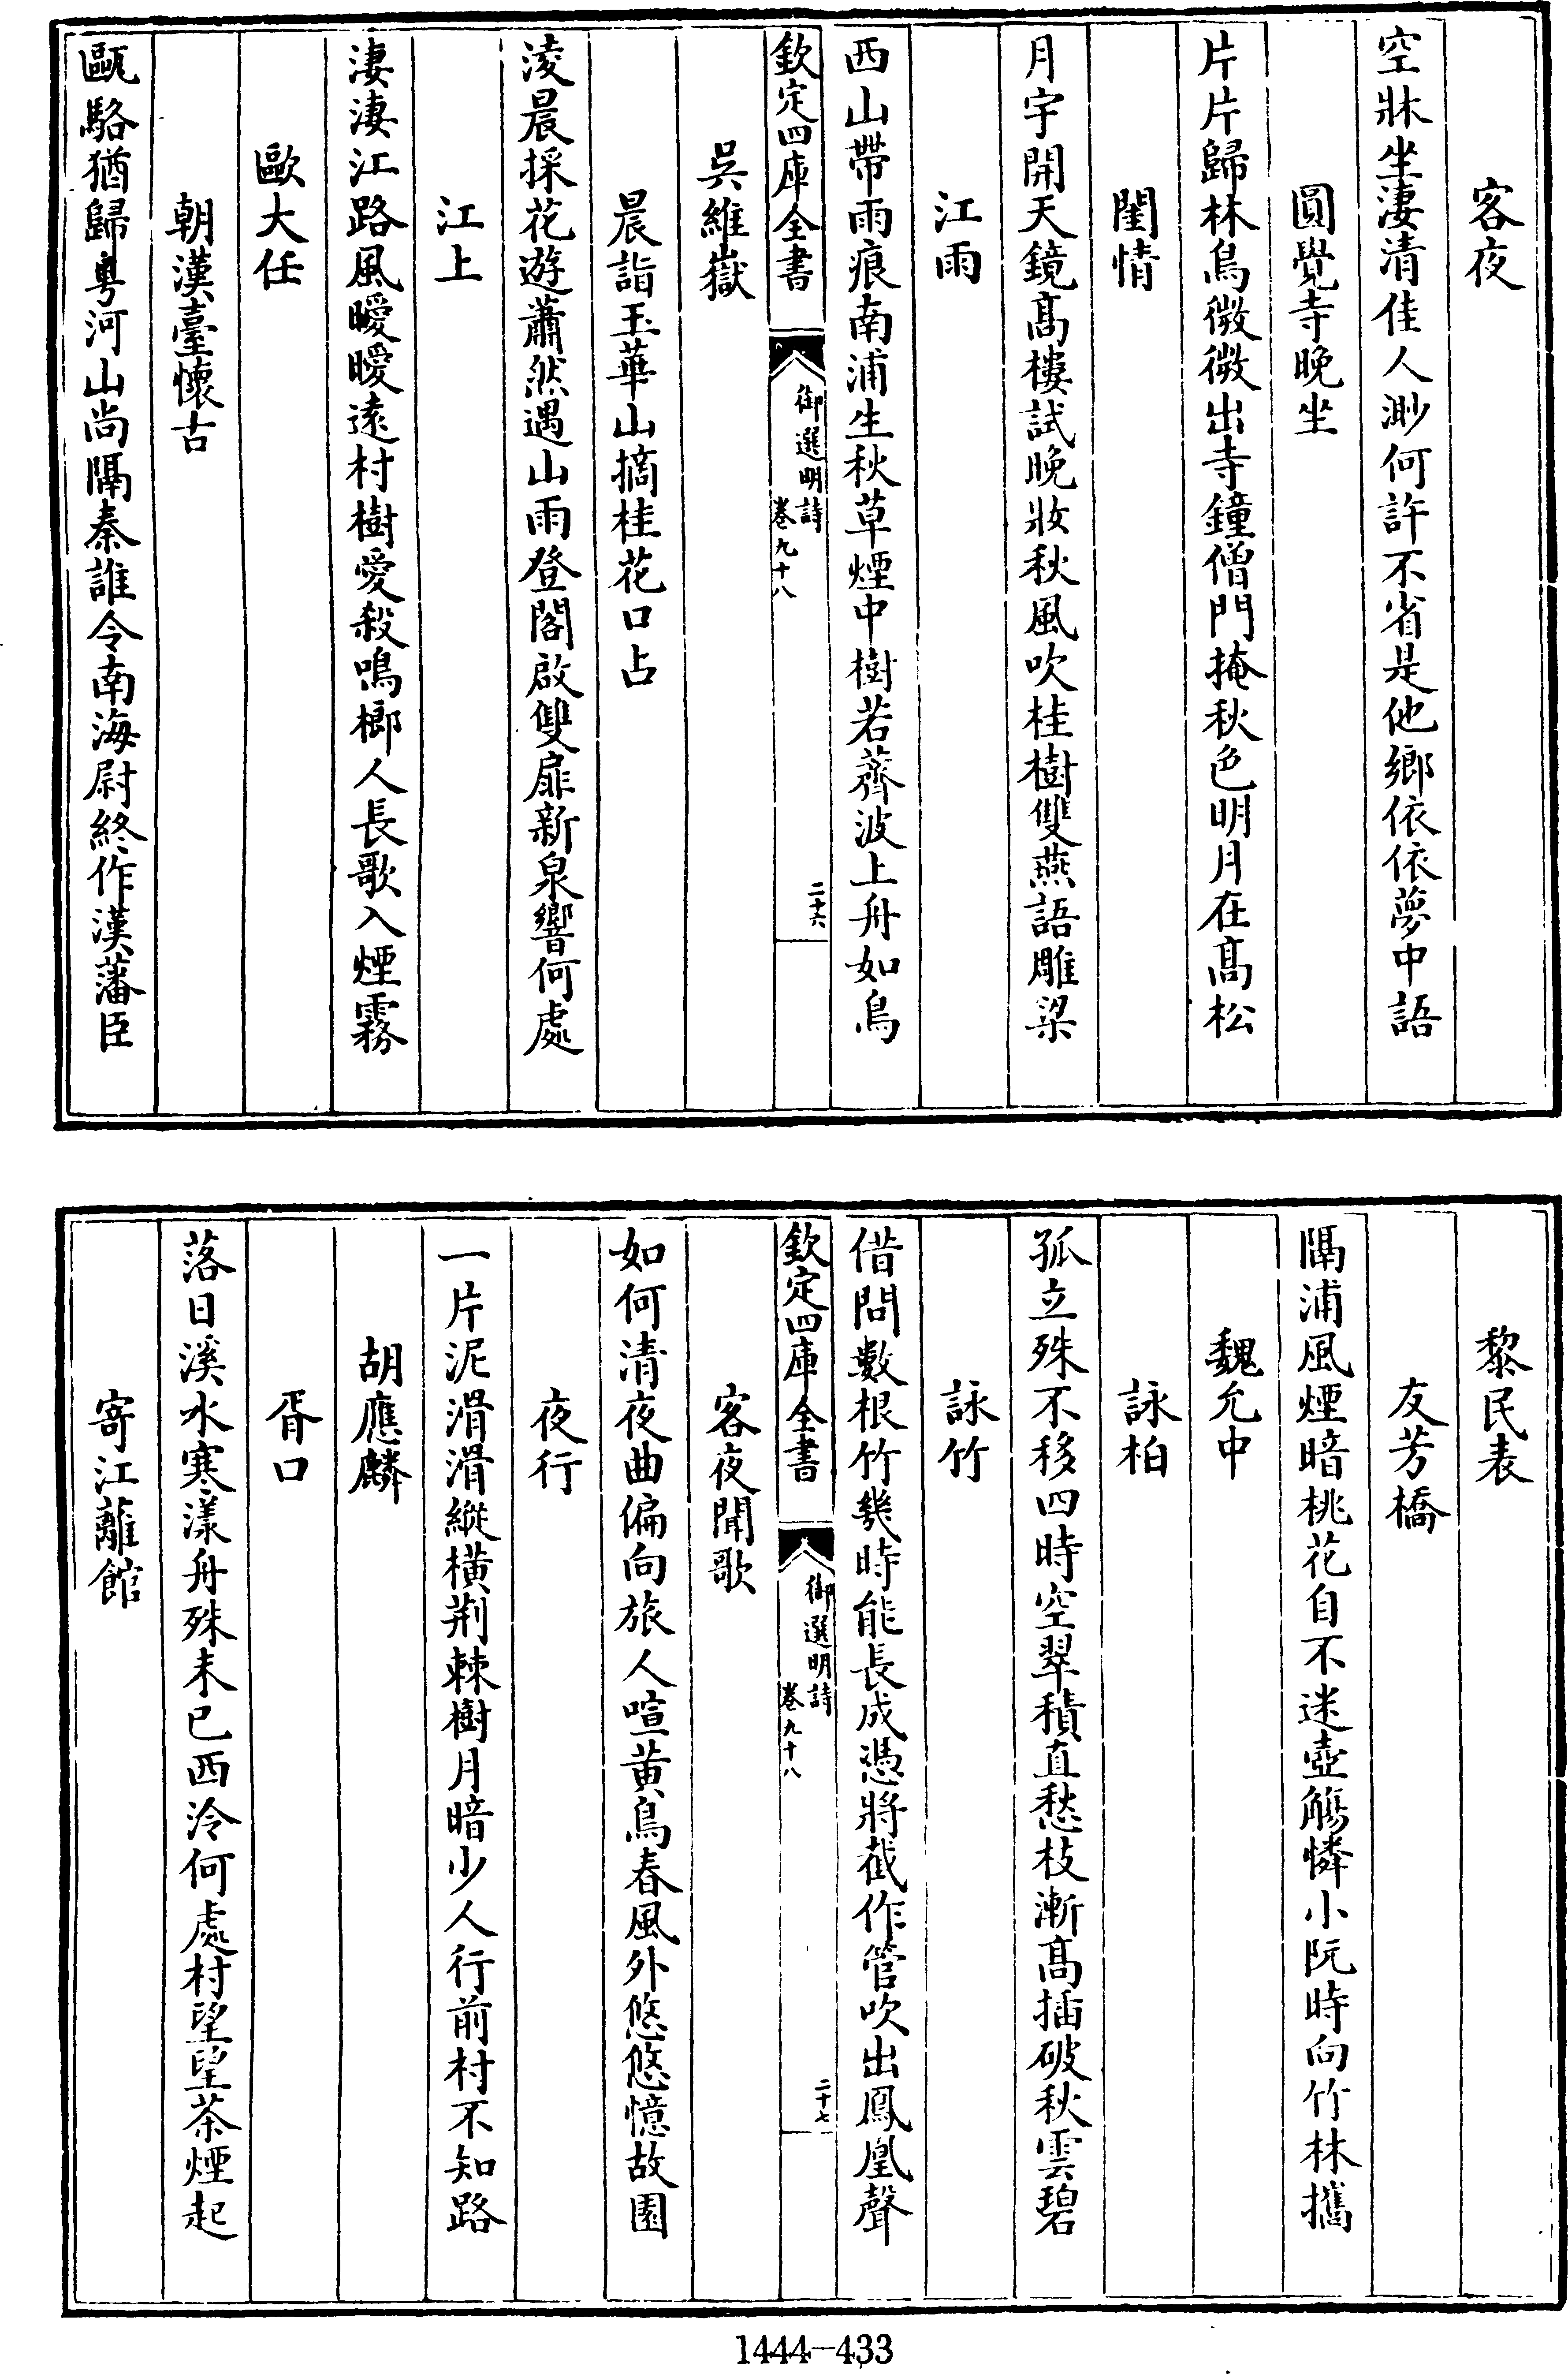 客夜
空牀坐淒清佳人渺何許不省是他鄉依依夢中語
圓覺寺晚坐
片片歸林鳥微微出寺鐘僧門掩秋色明月在髙松
閨情
月宇開天鏡髙樓試晚妝秋風吹桂樹雙燕語雕梁
江雨
西山帶雨痕南浦生秋草煙中樹若薺波上舟如鳥
欽定四庫全書
御選明詩
卷九十八
二十六
吳維嶽
晨詣玉華山摘桂花口占
淩晨採花遊蕭然遇山雨登閣啟雙扉新泉響何處
江上
淒淒江路風曖曖遠村樹愛殺鳴榔人長歌入煙霧
歐大任
朝漢臺懷古
甌駱猶歸粵河山尚隔秦誰令南海尉終作漢藩臣
黎民表
友芳橋
隔浦風煙暗桃花自不迷壺觴憐小阮時向竹林攜
魏允中
詠柏
孤立殊不移四時空翠積直愁枝漸髙插破秋雲碧
詠竹
借問數根竹幾時能長成憑將截作管吹出鳳凰聲
欽定四庫全書
御選明詩
卷九十八
二十七
客夜聞歌
如何清夜曲偏向旅人喧黄鳥春風外悠悠憶故園
夜行
一片泥滑滑縱橫荆棘樹月暗少人行前村不知路
胡應麟
胥口
落日溪水寒漾舟殊未已西泠何處村望望茶煙起
寄江蘺館
1444-433